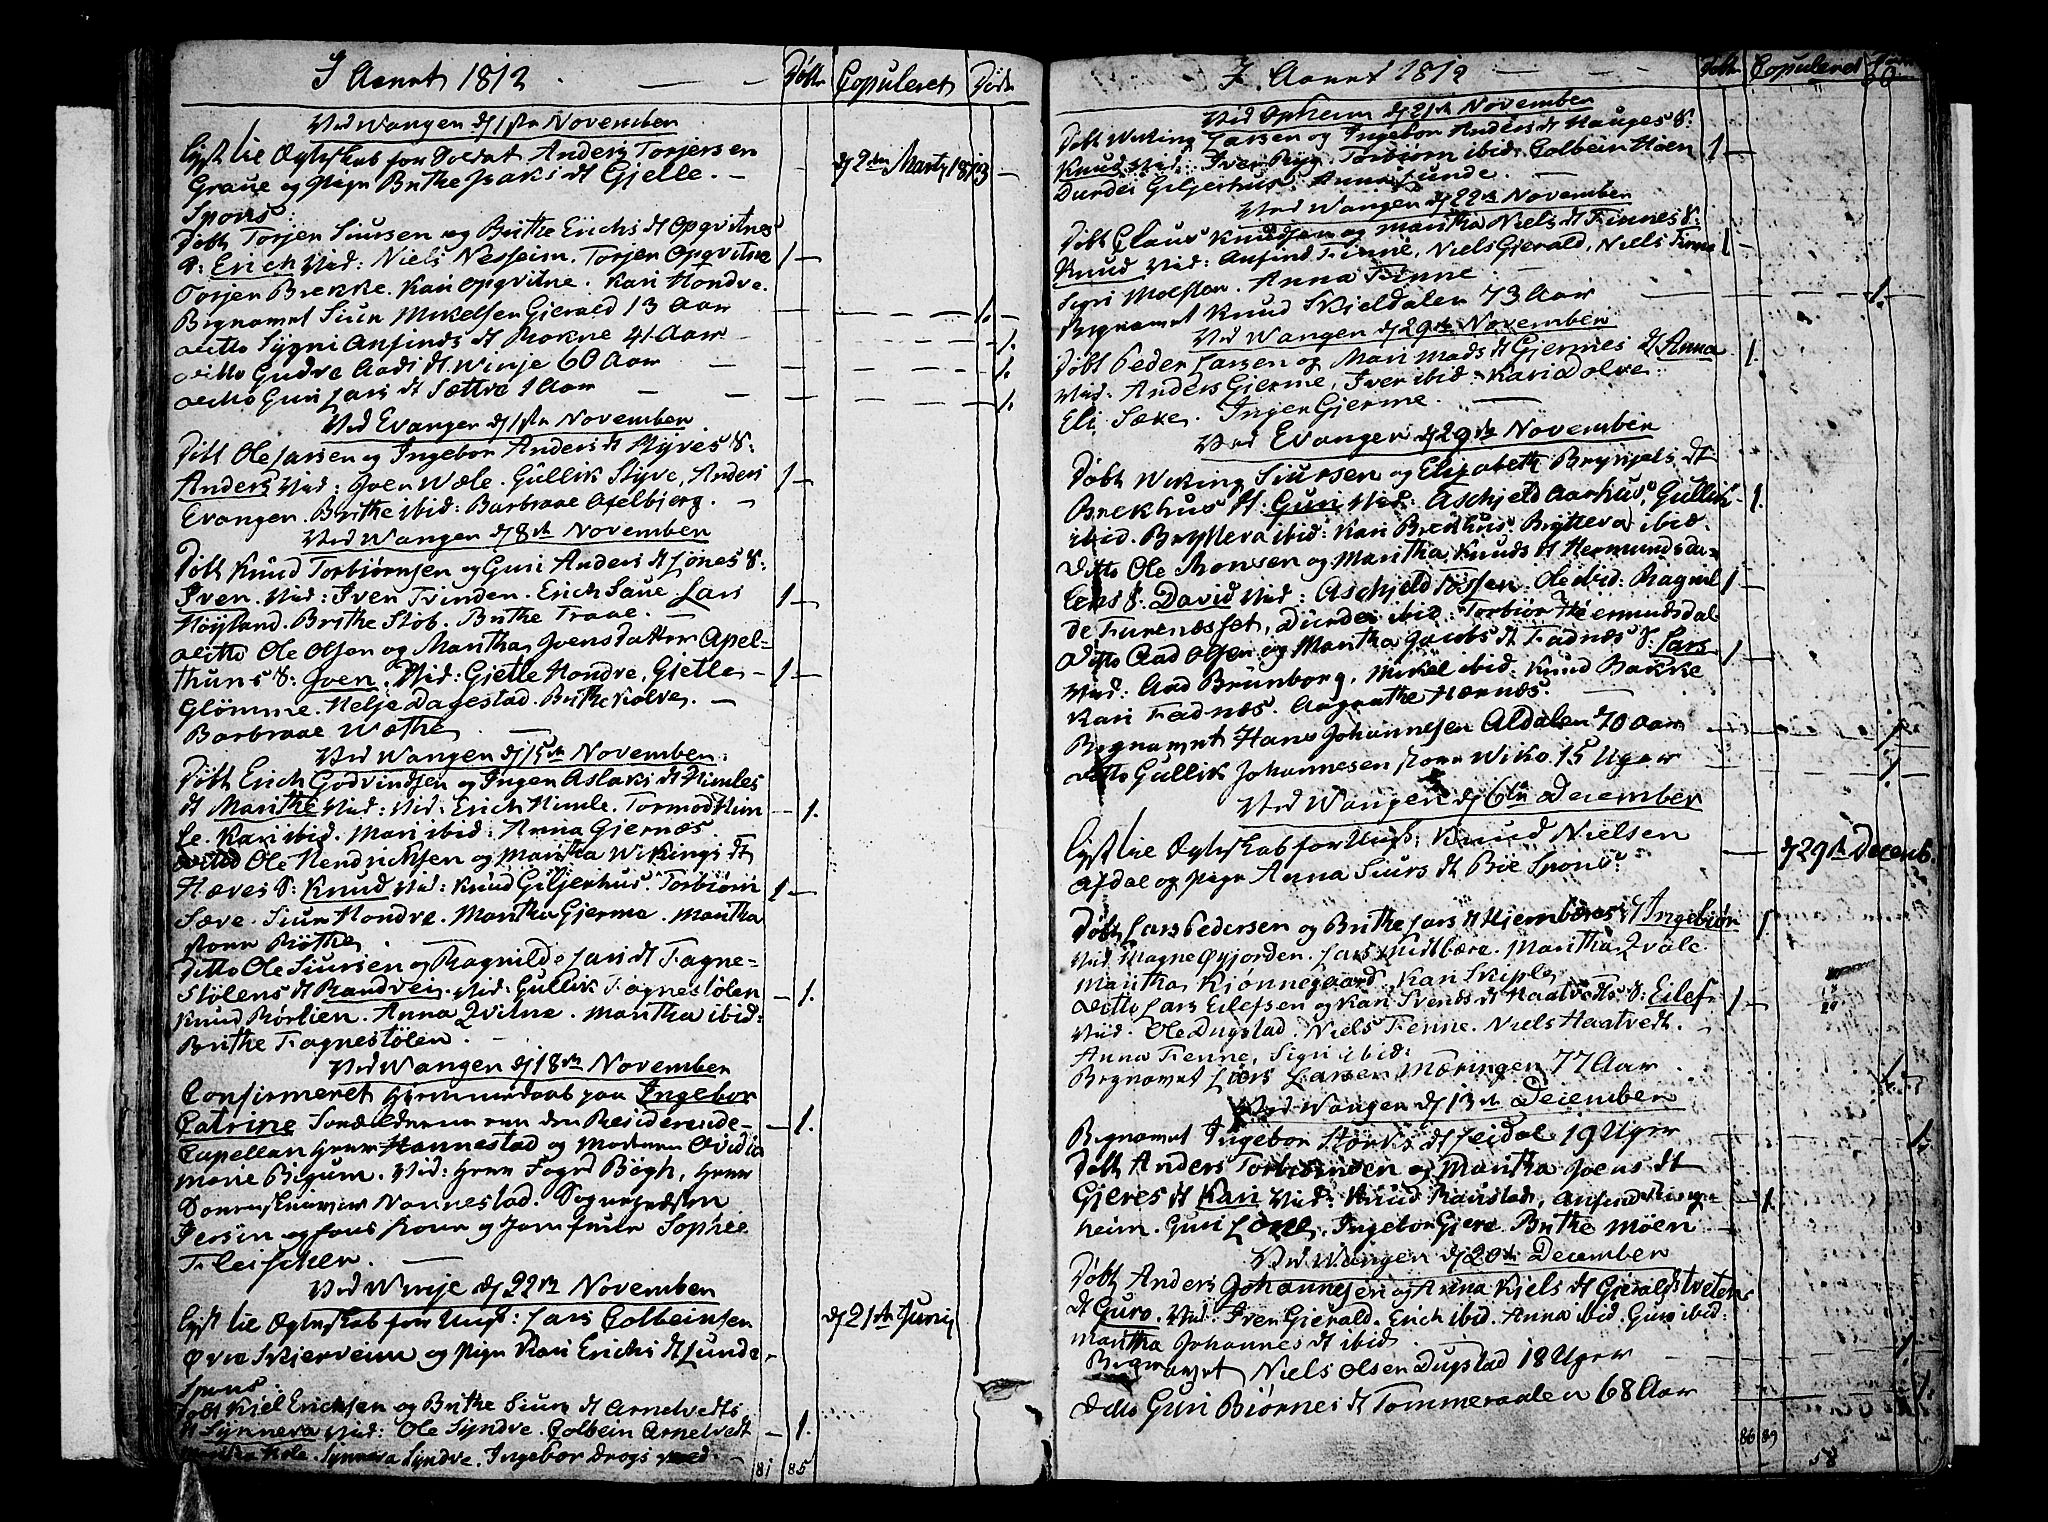 I Aaret 1812 Døbte Copuleret Døde
Ved Wangen d 1ste November
Lyst til Ægteskab for Soldat Anders Torjersen
Graue og Pige Brithe Isaks dt Gjelle. d 2den Marty 1813
Spons:
Døbt Torjer Siursen og Brithe Erichs dt Opqvitnes
S: Erich Vid: Niels Nesheim. Torjer Opqvitne 1
Torjer Brekke. Kari Opqvitne. Kari Hondve.
Begravet Siur Mikelsen Gjerald 13 Aar 1.
ditto Sygni Anfinds dt Rokne 41 Aar 1.
ditto Gudve Aads dt Winje 60 Aar 1.
ditto Guri Lars dt Sættre 1 Aar 1.
Ved Evanger d 1ste November
Døbt Ole Larsen og Ingebor Anders dt Styves S:
Anders Vid: Joen Wæle. Gullik Styve, Anders 1
Evanger. Brithe ibid: Barbraae Axelbierg.
Ved Wangen d 8de November
Døbt Knud Torbiørnsen og Guri Anders dt Lønes S:
Iver. Vid: Iver Tvinden. Erich Saue Lars 1
Høyland. Brithe Støb. Brithe Traae.
ditto Ole Olsen og Martha Joens datter Apel-
thuns S: Joen. Vid: Gjelle Hondve, Gjelle 1
Glømme. Helje Dagestad. Brithe Kolve.
Barbraae Wæthe
Ved Wangen d 15de November:
Døbt Erich Godvindsen og Inger Aslaks dt Himles
dt Marithe Vid: Vid: Erich Himle. Tormod Him 1.
le. Kari ibid. Mari ibid: Anna Gjernæs.
ditto Ole Hendricksen og Martha Wikings dt
Hæves S: Knud Vid: Knud Giljerhus. Torbiørn 1
Sæve. Siur Hondve. Martha Gjerme. Martha
store Røthe
Ditto Ole Siursen og Ragnilde Lars dt Fagne-
stølens dt Randvei. Vid: Gullik Fagnestølen 1.
Knud Rørlien. Anna Qvitne. Martha ibid:
Brithe Fagnestølen.
Ved Wangen d 18de November
Confirmeret Hiemmedaab paa Ingebor
Catrine Forældrerne ere den Residerende 1.
Capellan Herr Hannestad og Moderen Ovidia
Marie Bigum. Vid: Herr Foged Bøgh, Herr
Sorenskriver Nannestad. Sognepræsten
Jersin og hans Kone og Jomfrue Sophie
Fleischer.
Ved Winje d 22de November
Lyst til Ægteskab for Ungk: Lars Colbeinsen
Øvre Skjerveim og Pige Kari Erichs dt Lunde d 21de Juny
Spons:
Døbt Kiel Erichsen og Brithe Siurs dt Arnetvedts
dt Synneva Vid: Ole Syndve. Colbein Arnetvedt 1.
Synneva Syndve. Ingebor Drogsvold
81 85
I Aaret 1812 Døbte Copulered
Ved Opheim d 21de November
Døbt Wiking Larsen og Ingebor Anders dt Hauges S:
Knud Vid: Iver Ryg. Torbiørn ibid: Colbein Høen 1
Durdei Giljerhus. Anna Lunde.
Ved Wangen d 22de November
Døbt Claus Knudsen og Martha Niels dt Finnes S:
Knud Vid: Anfind Finne, Niels Gjerald, Niels Finne 1
Sigri Molster. Anna Finne
Begravet Knud Skieldalen 73 Aar 1.
Ved Wangen d 29de November
Døbt Peder Larsen og Mari Mads dt Gjermes dt Anna 1.
Vid: Anders Gjerme, Iver ibid: Kari Dolve:
Eli Sæve. Inger Gjerme.
Ved Evanger d 29de November
Døbt Wiking Siursen og Elisabeth Brynjels dt
Brekhus dt Guri Vid: Aschjeld Aarhus, Gullik 1.
ibid. Bryttera ibid: Kari Brekhus. Bryttera ibid.
ditto Ole Monsen og Martha Knuds dt Hermundsda-
lens S: David Vid: Aschjeld Fossen. Ole ibid: Ragnil 1
de Furenæsset, Durdei ibid: Torbiør Hermundsdal
ditto Aad Olsen og Martha Jacobs dt Fadnæs S: Lars 1
Vid: Aad Brunborg, Mikel ibid: Knud Bakke
Kari Fadnæs. Aagathe Hærnæs.
Begravet Hans Johannesen Aldalen 70 Aar 1.
ditto Gullik Johannesen store Wiko 15 Uger 1.
Ved Wangen d 6te December
Lyst til Ægteskab for Ungk: Knud Nielsen
Afdal og Pige Anna Siurs dt Bøe Spons: d 29de Decemb.
Døbt Lars Pedersen og Brithe Lars dt Hiembæres dt Ingebiør 1.
Vid Magne Øyjorden. Lars Midbære. Martha Qvale
Martha Kjønnegaard Kari Skiple
ditto Lars Eilefsen og Kari Svends dt Haatvedts S: Eilef 1
Vid. Ole Dugstad. Niels Finne. Niels Haatvedt.
Anna Finne, Sigri ibid:
Begravet Lars Larsen Mæringen 77 Aar 1.
Ved Wangen d 13de December
Begravet Ingebor Størks dt Leidal 19 Uger 1.
Døbt Anders Torbiørnsen og Martha Joens dt
Gjeres dt Kari Vid: Knud Ranstad, Anfind Ringe- 1.
heim. Guri Løne. Ingebor Gjere Brithe Møen
Ved Wangen d 20de December
Døbt Anders Johannesen og Anna Kiels dt Gieraldstvetens
dt Guro. Vid: Iver Gierald. Erich ibid. Anna ibid. Guro ibid:
Martha Johannes dt ibid
Begravet Niels Olsen Dugstad 18 Uger 1.
ditto Guri Biørnes dt Tommeraalen 68 Aar 1.
86 89
58